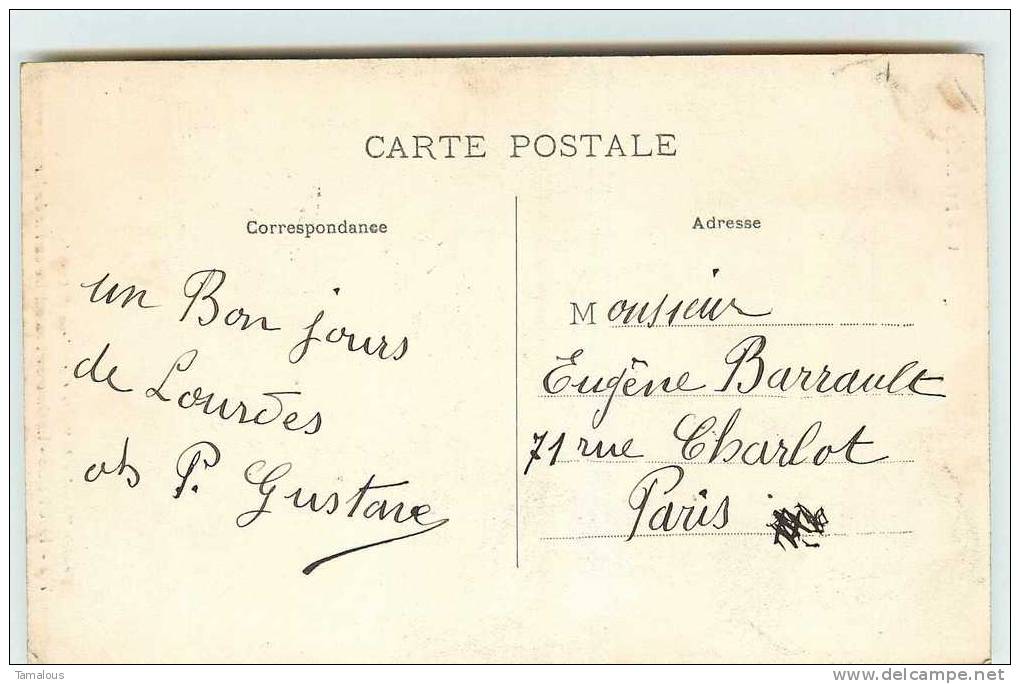 CARTE POSTALE
Correspondance
un Bon jours
de Lourdes
P. Gustave
Adresse
Monsieur
Eugène Barrault
71 rue Charlot
Paris
Tamalous
www.delcampe.net